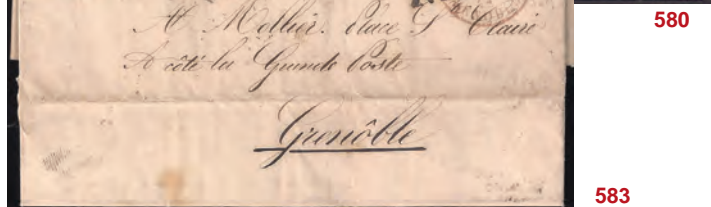 580
A Mellier. Place Ste Claire
A côté la Grande Poste
Grenôble
583